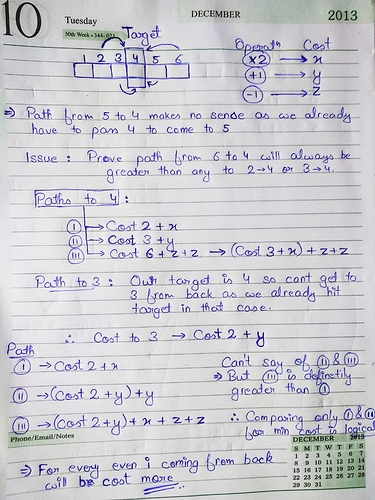 10 Tuesday DECEMBER 2013
50th Week • 344-021
Target
1 2 3 4 5 6
Operath Cost
×2 → x
+1 → y
-1 → z
⇒ Path from 5 to 4 makes no sense as we already
have to pass 4 to come to 5
Issue : Prove path from 6 to 4 will always be
greater than any to 2→4 or 3→4.
Paths to 4 :
(i) → Cost 2 + x
(ii) → Cost 3 + y
(iii) → Cost 6 + z + z → (Cost 3 + x) + z + z
Path to 3 : Our target is 4 so cant get to
3 from back as we already hit
target in that case.
∴ Cost to 3 → Cost 2 + y
Path
(i) → Cost 2 + x
(ii) → (Cost 2 + y) + y
(iii) → (Cost 2 + y) + x + z + z
Can't say of (ii) & (iii)
⇒ But (iii) is definetly
greater than (i)
∴ Comparing only (i) & (ii)
for min cost is logical
Phone/Email/Notes
⇒ For every even i coming from back
will be cost more
DECEMBER 2013
S M T W T F S
1 2 3 4 5 6 7
8 9 10 11 12 13 14
15 16 17 18 19 20 21
22 23 24 25 26 27 28
29 30 31